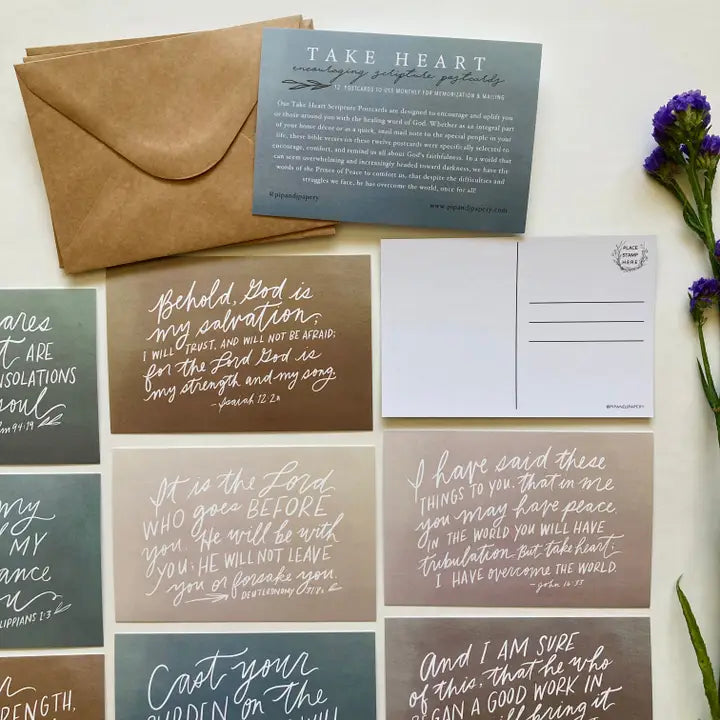 TAKE HEART
encouraging scripture postcards
12 POSTCARDS TO USE MONTHLY FOR MEMORIZATION & MAILING
Our Take Heart Scripture Postcards are designed to encourage and uplift you
or those around you with the healing word of God. Whether as an integral part
of your home décor or as a quick, snail mail note to the special people in your
life, these bible verses on these twelve postcards were specifically selected to
encourage, comfort, and remind us all about God's faithfulness. In a world that
can seem overwhelming and increasingly headed toward darkness, we have the
words of the Prince of Peace to comfort us, that despite the difficulties and
struggles we face, he has overcome the world, once for all!
@pipandjpapery
www.pipandjpapery.com
PLACE
STAMP
HERE
@PIPANDJPAPERY
Behold, God is
my salvation;
I WILL TRUST, AND WILL NOT BE AFRAID;
for the Lord God is
my strength and my song.
- Isaiah 12:2a
ares
ARE
NSOLATIONS
soul
94:19
It is the Lord
WHO goes BEFORE
you. He will be with
YOU; HE WILL NOT LEAVE
you or forsake you.
DEUTERONOMY 31:8a
I have said these
THINGS TO YOU, that in me
you may have peace.
IN THE WORLD YOU WILL HAVE
tribulation. But take heart;
I HAVE OVERCOME THE WORLD.
- John 16:33
my
MY
ance
LIPPIANS 1:3
Cast your
BURDEN on the
WILL
And I AM SURE
of this, that he who
BEGAN A GOOD WORK IN
will bring it
RENGTH,